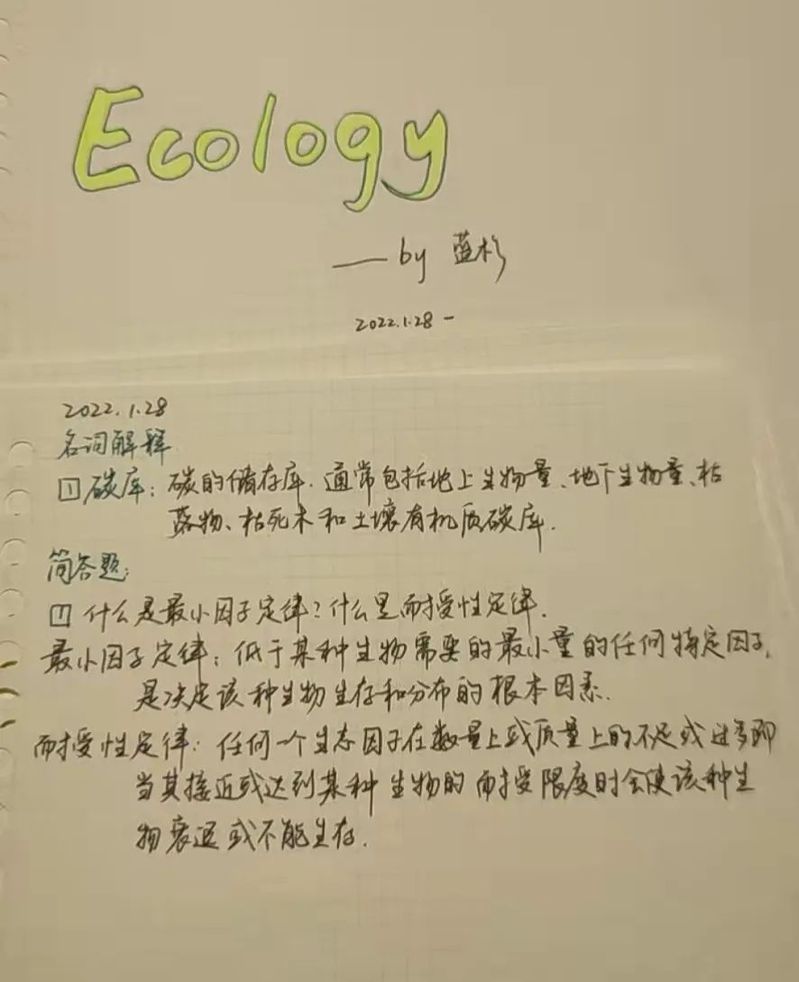 Ecology
——by 蓝杉
2022.1.28 -
2022.1.28
名词解释
1 碳库：碳的储存库．通常包括地上生物量、地下生物量、枯
落物、枯死木和土壤有机质碳库．
简答题：
1 什么是最小因子定律？什么是耐受性定律．
最小因子定律：低于某种生物需要的最小量的任何特定因子，
是决定该种生物生存和分布的根本因素．
耐受性定律：任何一个生态因子在数量上或质量上的不足或过多即
当其接近或达到某种生物的耐受限度时会使该种生
物衰退或不能生存．